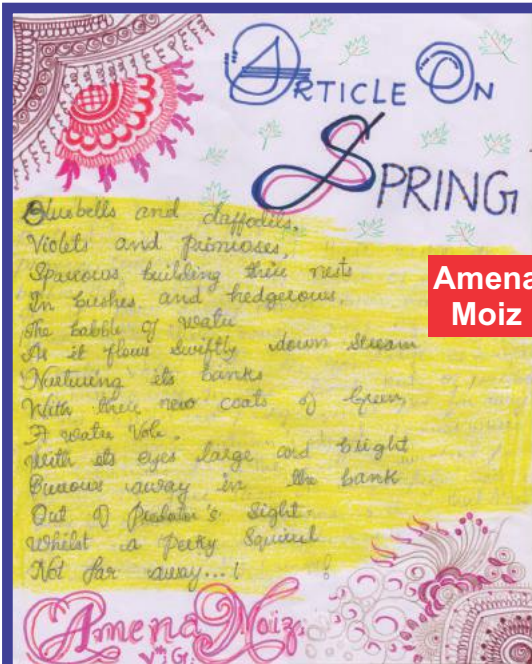 ARTICLE ON
SPRING
Bluebells and daffodils,
Violets and primroses,
Sparrows building their nests
In bushes and hedgerows.
The babble of water
As it flows swiftly down stream
Nurturing its banks
With their new coats of Green
A water Vole.
With its eyes large and bright
Burrows away in the bank
Out of Predator's Sight.
Whilst a perky Squirrel
Not far away...!
Amena
Moiz
Amena Moiz.